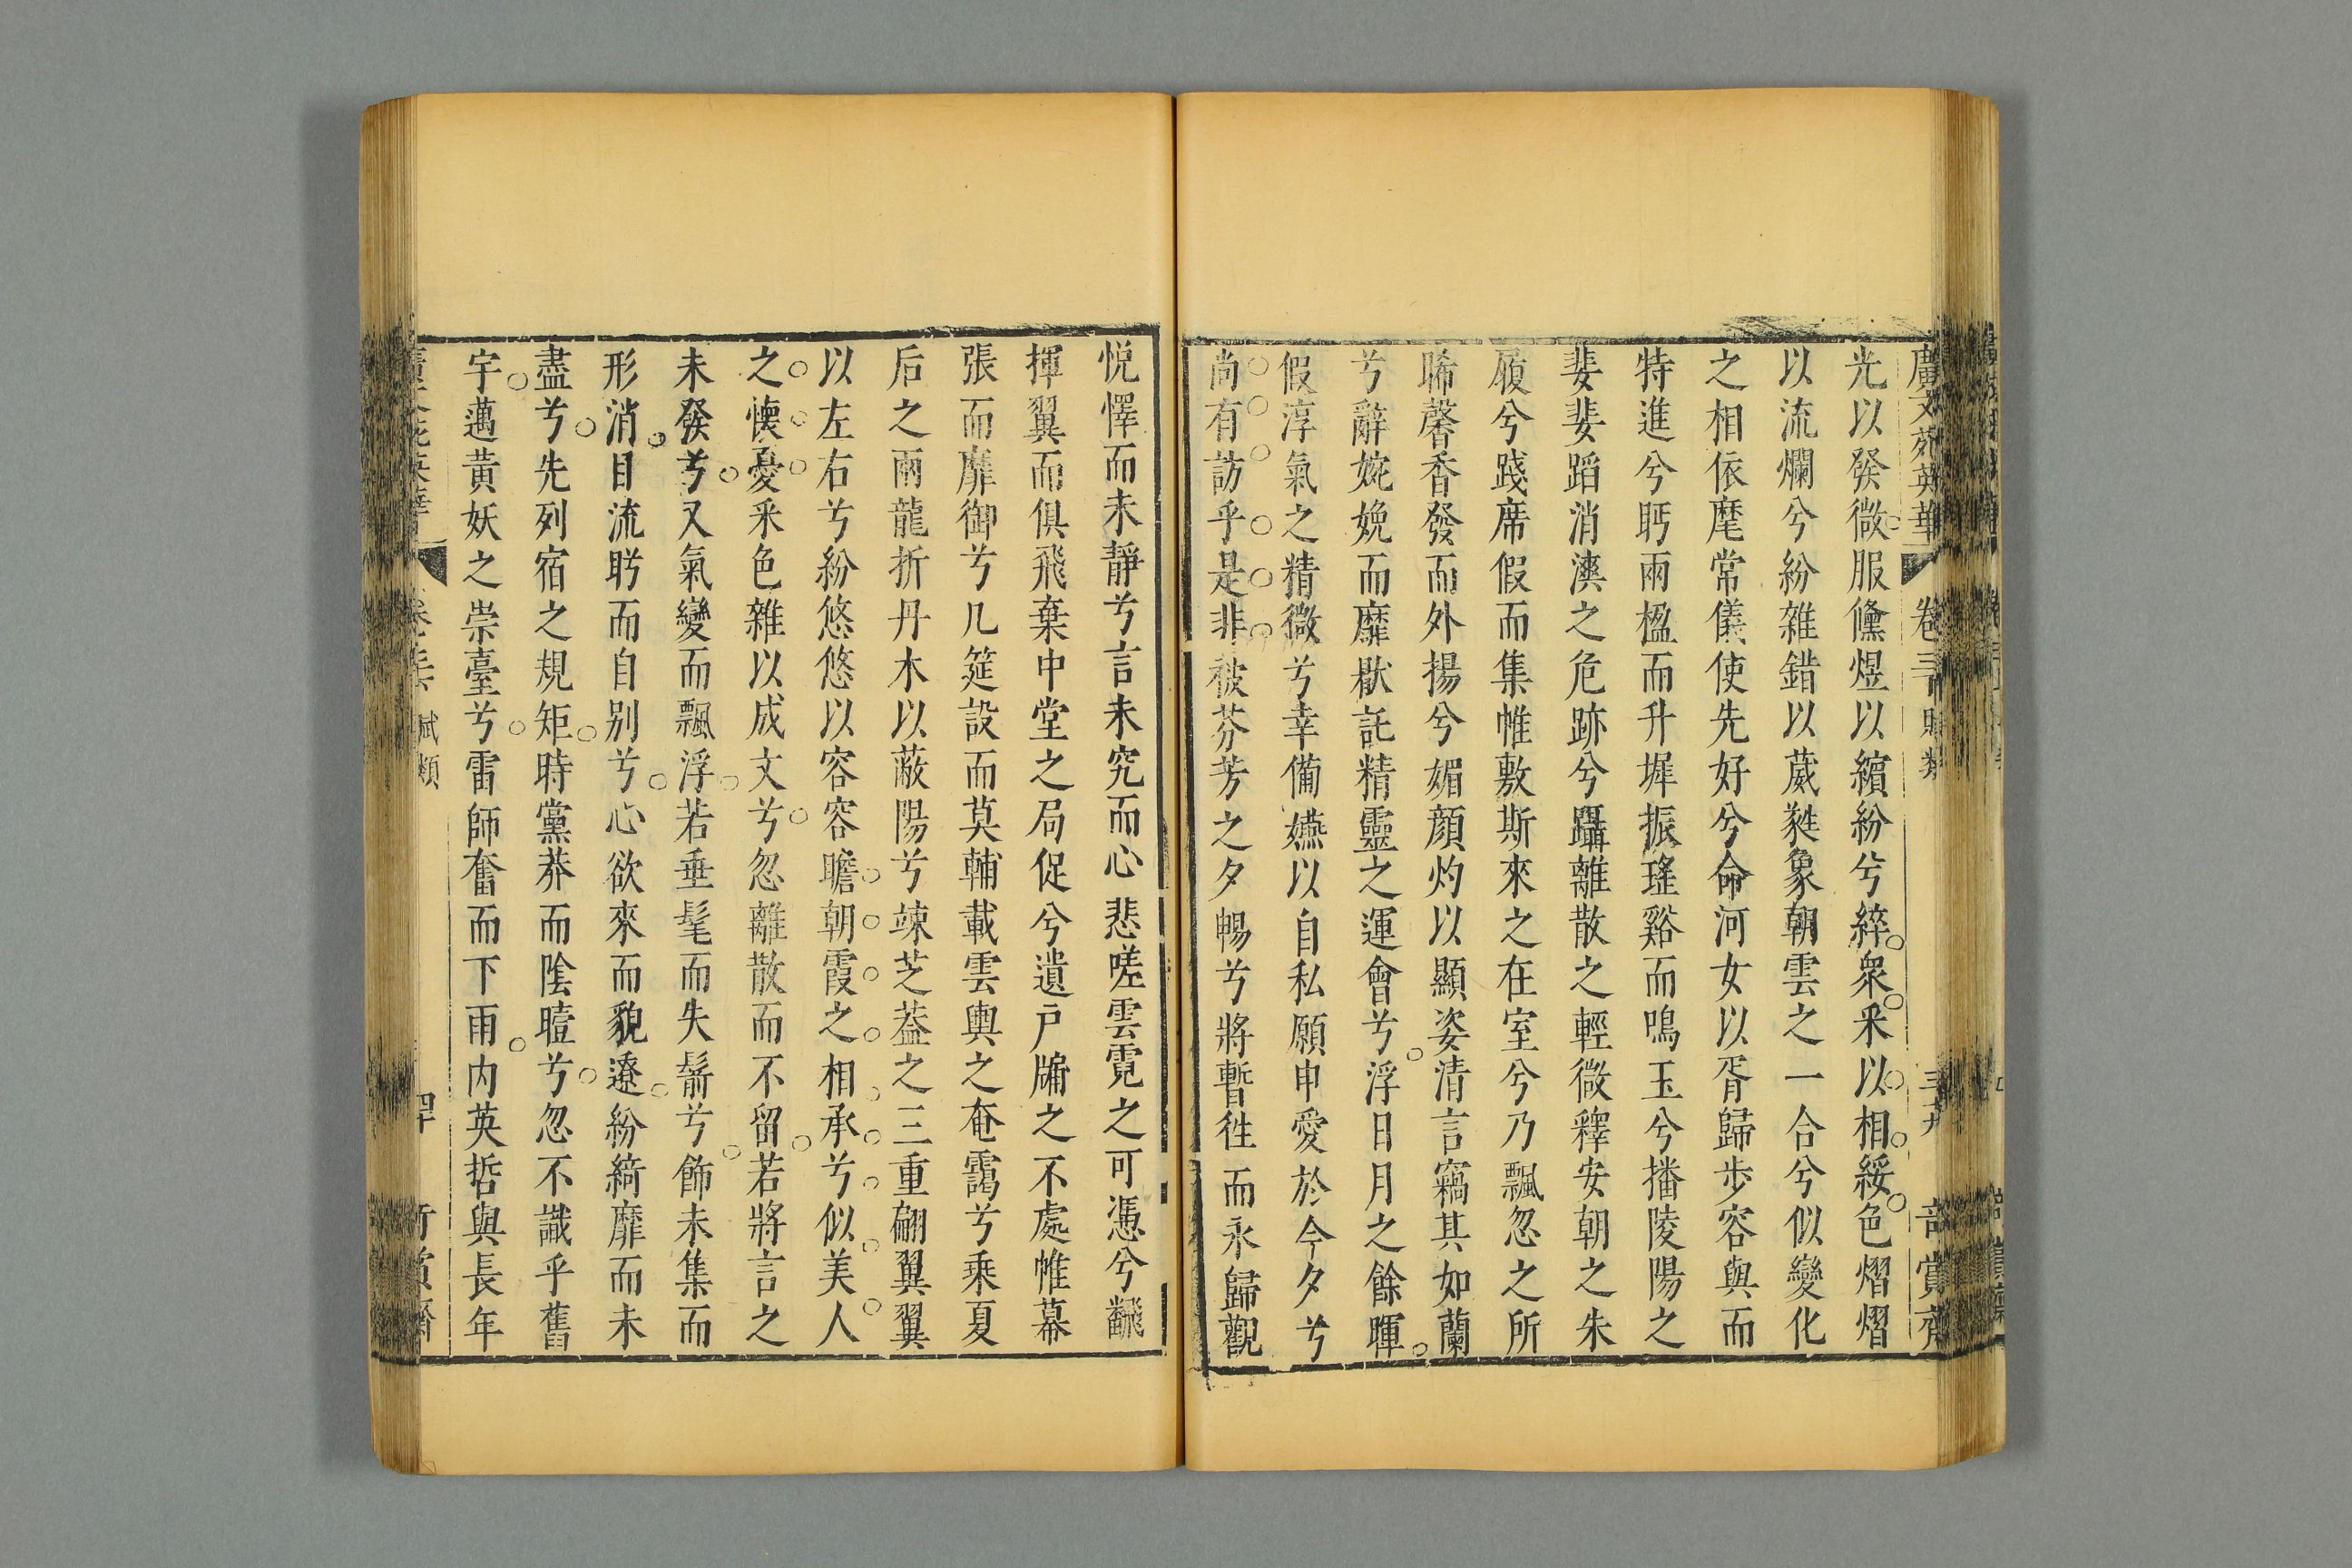 廣文苑英華 卷三 賦類
光以發微服儵煜以繽紛兮綷衆采以相綏色熠熠
以流爛兮紛雜錯以葳蕤象朝雲之一合兮似變化
之相依麾常儀使先好兮命河女以胥歸步容與而
特進兮眄兩楹而升墀振瑤谿而鳴玉兮播陵陽之
斐斐蹈消漠之危跡兮躡離散之輕微釋安朝之朱
履兮踐席假而集帷敷斯來之在室兮乃飄忽之所
晞馨香發而外揚兮媚顏灼以顯姿清言竊其如蘭
兮辭婉娩而靡猒託精靈之運會兮浮日月之餘暉
假淳氣之精微兮幸備嬿以自私願申愛於今夕兮
尚有訪乎是非被芬芳之夕暢兮將暫徃而永歸觀
悅懌而未靜兮言未究而心悲嗟雲霓之可憑兮翻
揮翼而俱飛棄中堂之局促兮遺戸牖之不處帷幕
張而靡御兮几筵設而莫輔載雲輿之奄靄兮乘夏
后之兩龍折丹木以蔽陽兮竦芝葢之三重翩翼翼
以左右兮紛悠悠以容容瞻朝霞之相承兮似美人
之懷憂采色雜以成文兮忽離散而不留若將言之
未發兮又氣變而飄浮若垂髦而失鬋兮飾未集而
形消目流眄而自别兮心欲來而貌遼紛綺靡而未
盡兮先列宿之規矩時黨莽而陰曀兮忽不識乎舊
宇邁黃妖之崇臺兮雷師奮而下雨内英哲與長年
賦類 四